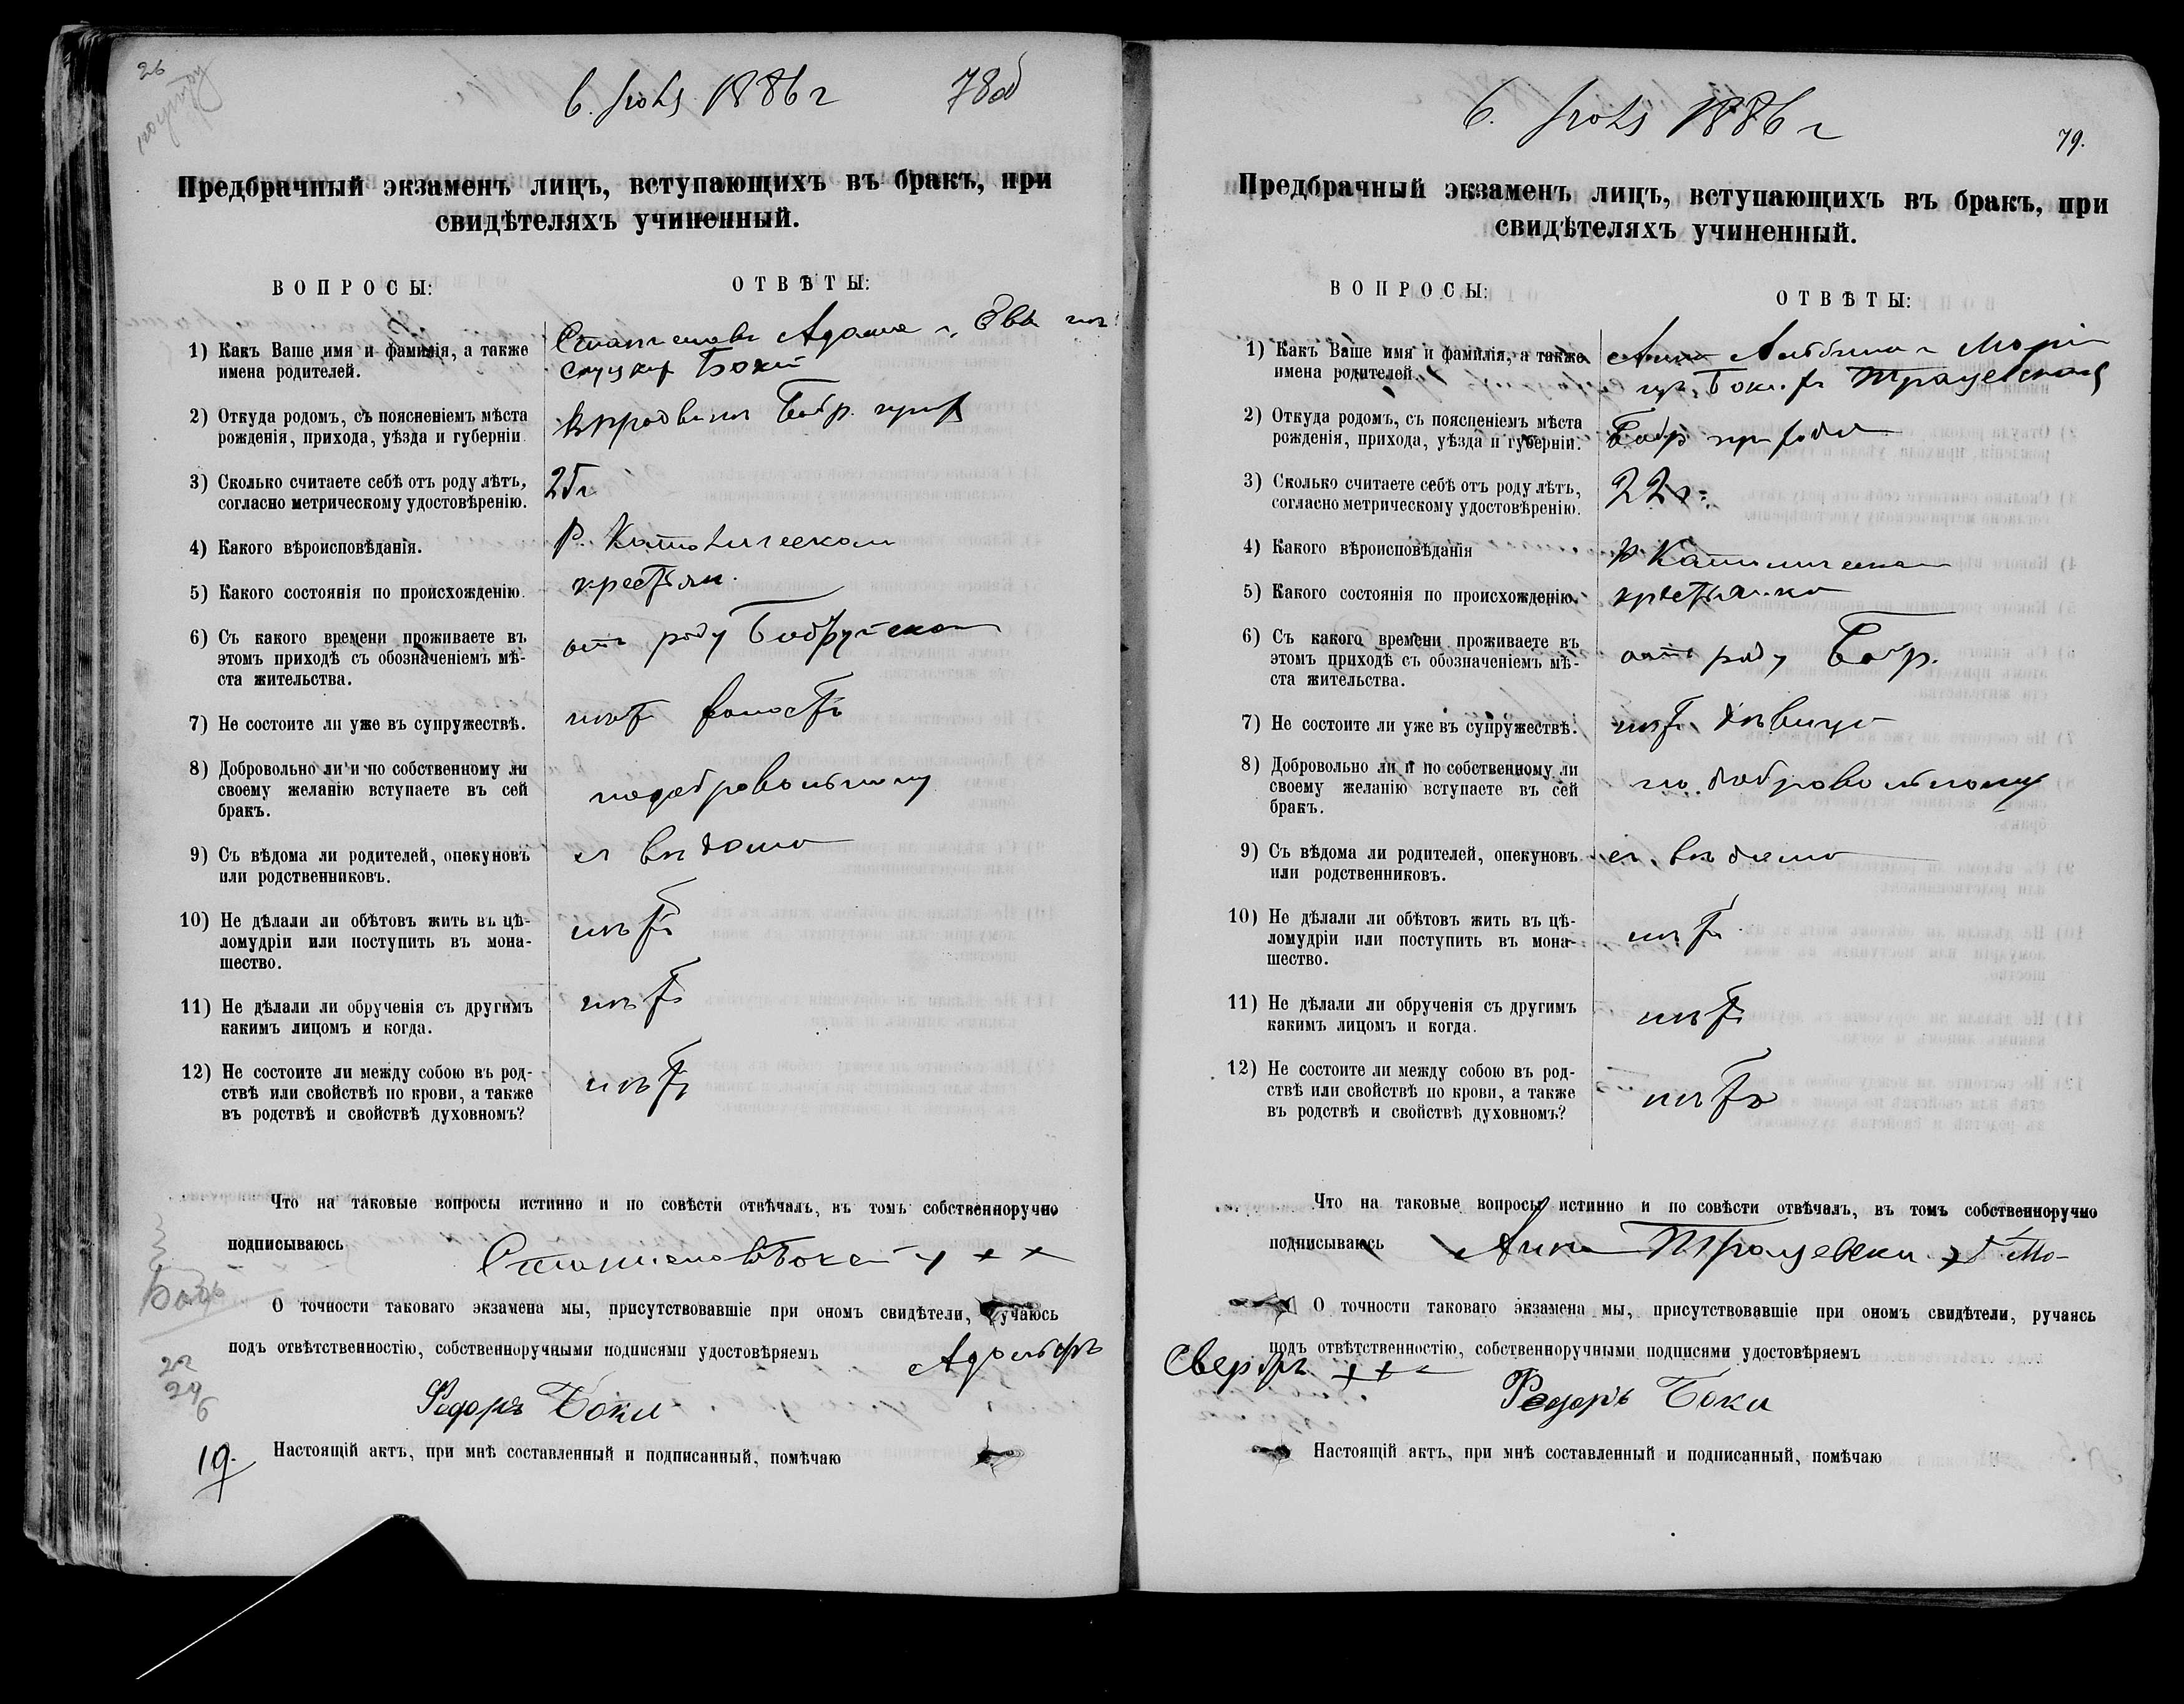 26
6. 1886 г 78об
Предбрачный экзаменъ лицъ, вступающихъ въ бракъ, при
свидѣтеляхъ учиненный.
ВОПРОСЫ: ОТВѢТЫ:
1) Какъ Ваше имя и фамилія, а также
имена родителей.
Адама и Евы
Боки
2) Откуда родомъ, съ поясненіемъ мѣста
рожденія, прихода, уѣзда и губерніи.
Бобр.
3) Сколько считаете себѣ отъ роду лѣтъ,
согласно метрическому удостовѣренію.
25 г
4) Какого вѣроисповѣданія.
Р. Католическаго
5) Какого состоянія по происхожденію.
крестьян.
6) Съ какого времени проживаете въ
этомъ приходѣ съ обозначеніемъ мѣ-
ста жительства.
отъ роду
7) Не состоите ли уже въ супружествѣ.
нѣтъ холостъ
8) Добровольно ли и по собственному ли
своему желанію вступаете въ сей
бракъ.
по добровольному
9) Съ вѣдома ли родителей, опекуновъ
или родственниковъ.
съ вѣдома
10) Не дѣлали ли обѣтовъ жить въ цѣ-
ломудріи или поступить въ мона-
шество.
нѣтъ
11) Не дѣлали ли обрученія съ другимъ
какимъ лицомъ и когда.
нѣтъ
12) Не состоите ли между собою въ род-
ствѣ или свойствѣ по крови, а также
въ родствѣ и свойствѣ духовномъ?
нѣтъ
Что на таковые вопросы истинно и по совѣсти отвѣчалъ, въ томъ собственноручно
подписываюсь
О точности таковаго экзамена мы, присутствовавшіе при ономъ свидѣтели, ручаюсь
подъ отвѣтственностію, собственноручными подписями удостовѣряемъ Адольфъ
Федоръ Боки
19. Настоящій актъ, при мнѣ составленный и подписанный, помѣчаю
6. 1886 г
79.
Предбрачный экзаменъ лицъ, вступающихъ въ бракъ, при
свидѣтеляхъ учиненный.
ВОПРОСЫ: ОТВѢТЫ:
1) Какъ Ваше имя и фамилія, а также
имена родителей.
Анна
2) Откуда родомъ, съ поясненіемъ мѣста
рожденія, прихода, уѣзда и губерніи.
Бобр прихода
3) Сколько считаете себѣ отъ роду лѣтъ,
согласно метрическому удостовѣренію.
22 г.
4) Какого вѣроисповѣданія
Р Католическаго
5) Какого состоянія по происхожденію.
крестьянка
6) Съ какого времени проживаете въ
этомъ приходѣ съ обозначеніемъ мѣ-
ста жительства.
отъ роду Бобр.
7) Не состоите ли уже въ супружествѣ.
нѣтъ дѣвица
8) Добровольно ли и по собственному ли
своему желанію вступаете въ сей
бракъ.
по добровольному
9) Съ вѣдома ли родителей, опекуновъ
или родственниковъ.
съ вѣдома
10) Не дѣлали ли обѣтовъ жить въ цѣ-
ломудріи или поступить въ мона-
шество.
нѣтъ
11) Не дѣлали ли обрученія съ другимъ
какимъ лицомъ и когда.
нѣтъ
12) Не состоите ли между собою въ род-
ствѣ или свойствѣ по крови, а также
въ родствѣ и свойствѣ духовномъ?
нѣтъ
Что на таковые вопросы истинно и по совѣсти отвѣчалъ, въ томъ собственноручно
подписываюсь Анна
О точности таковаго экзамена мы, присутствовавшіе при ономъ свидѣтели, ручаясь
подъ отвѣтственностію, собственноручными подписями удостовѣряемъ
Федоръ Боки
Настоящій актъ, при мнѣ составленный и подписанный, помѣчаю